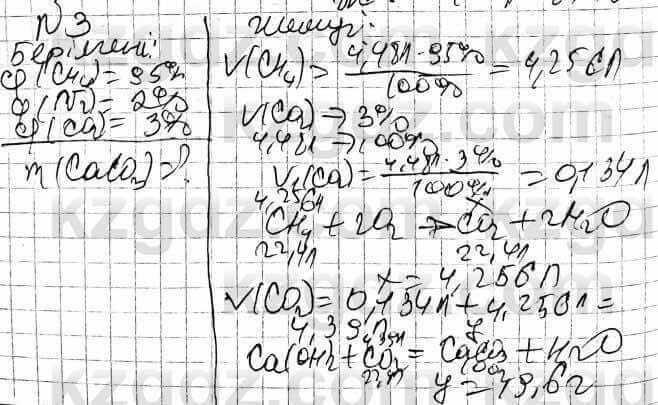 N3
Берілгені:
φ(CH₄)=95%
φ(N₂)=2%
φ(CO₂)=3%
m(CaCO₃)=?
Шешуі:
V(CH₄)=4,48л·95%/100%=4,256л
V(CO₂)→3%
4,48л→100%
V₁(CO₂)=4,48л·3%/100%=0,134л
4,256л x
CH₄+2O₂→CO₂+2H₂O
22,4л 22,4л
x=4,256л
V(CO₂)=0,134л+4,256л=
4,39л
4,39л y
Ca(OH)₂+CO₂=CaCO₃+H₂O
22,4л 100г
y=19,6г